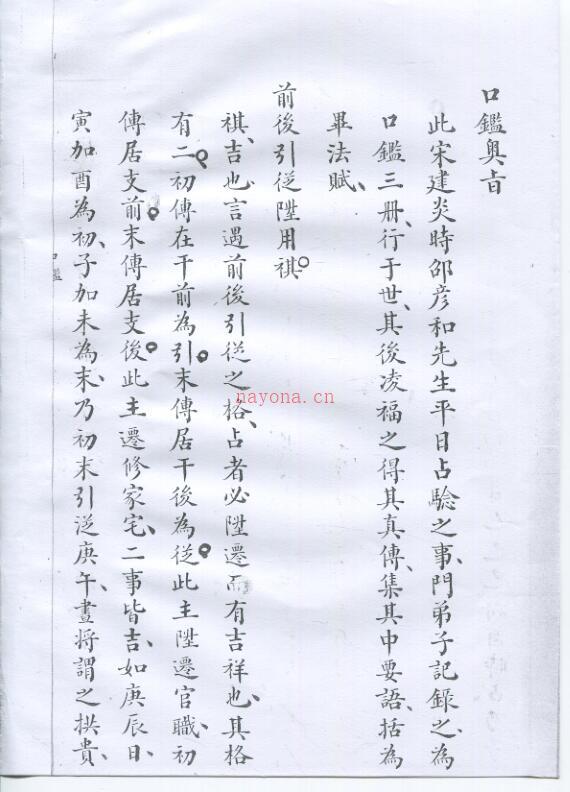 口鑑奥旨
此宋建炎時邵彦和先生平日占驗之事、門弟子記錄之、為
口鑑三册、行于世、其後凌福之得其真傳、集其中要語、括為
畢法賦、
前後引從陞用祺。
祺、吉也、言遇前後引從之格、占者必陞遷而有吉祥也、其格
有二。初傳在干前為引。末傳居干後為從。此主陞遷官職、初
傳居支前。末傳居支後。此主遷修家宅、二事皆吉、如庚辰日、
寅加酉為初、子加未為末、乃初末引從庚午、晝將謂之拱貴、
口鑑
nayona.cn